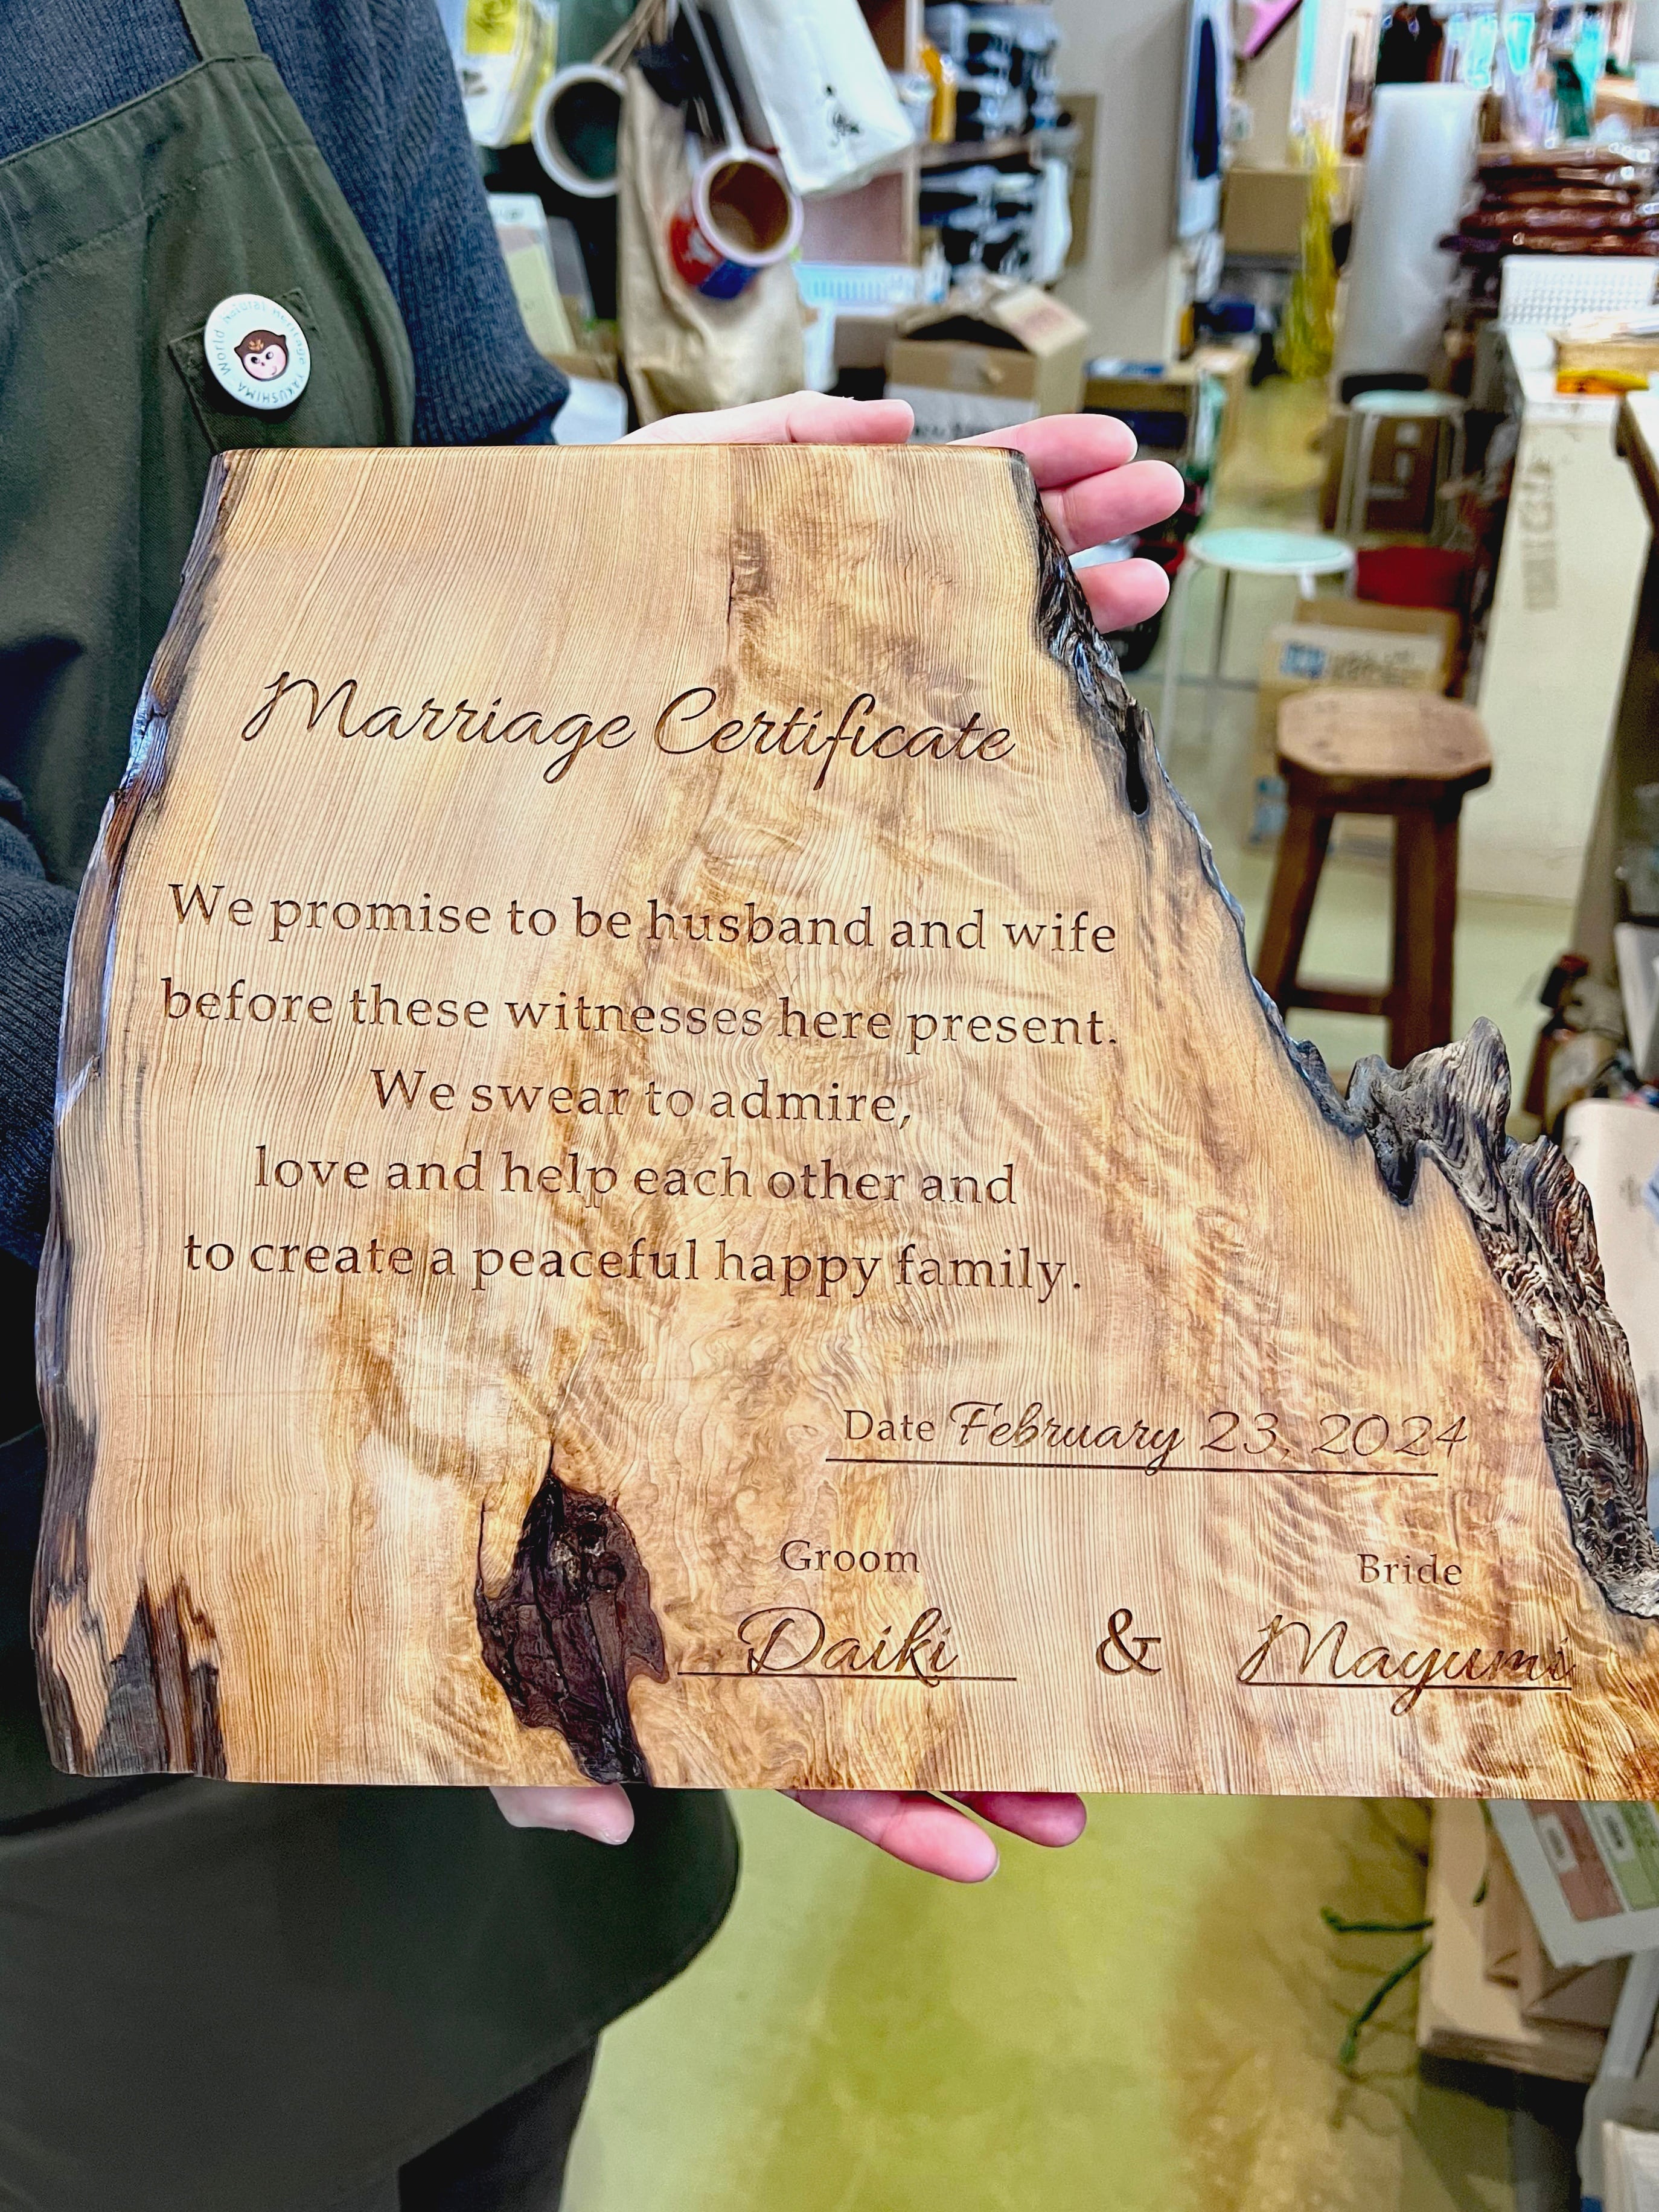 World Natural Heritage YAKUSHIMA
Marriage Certificate
We promise to be husband and wife
before these witnesses here present.
We swear to admire,
love and help each other and
to create a peaceful happy family.
Date February 23, 2024
Groom Bride
Daiki & Mayumi